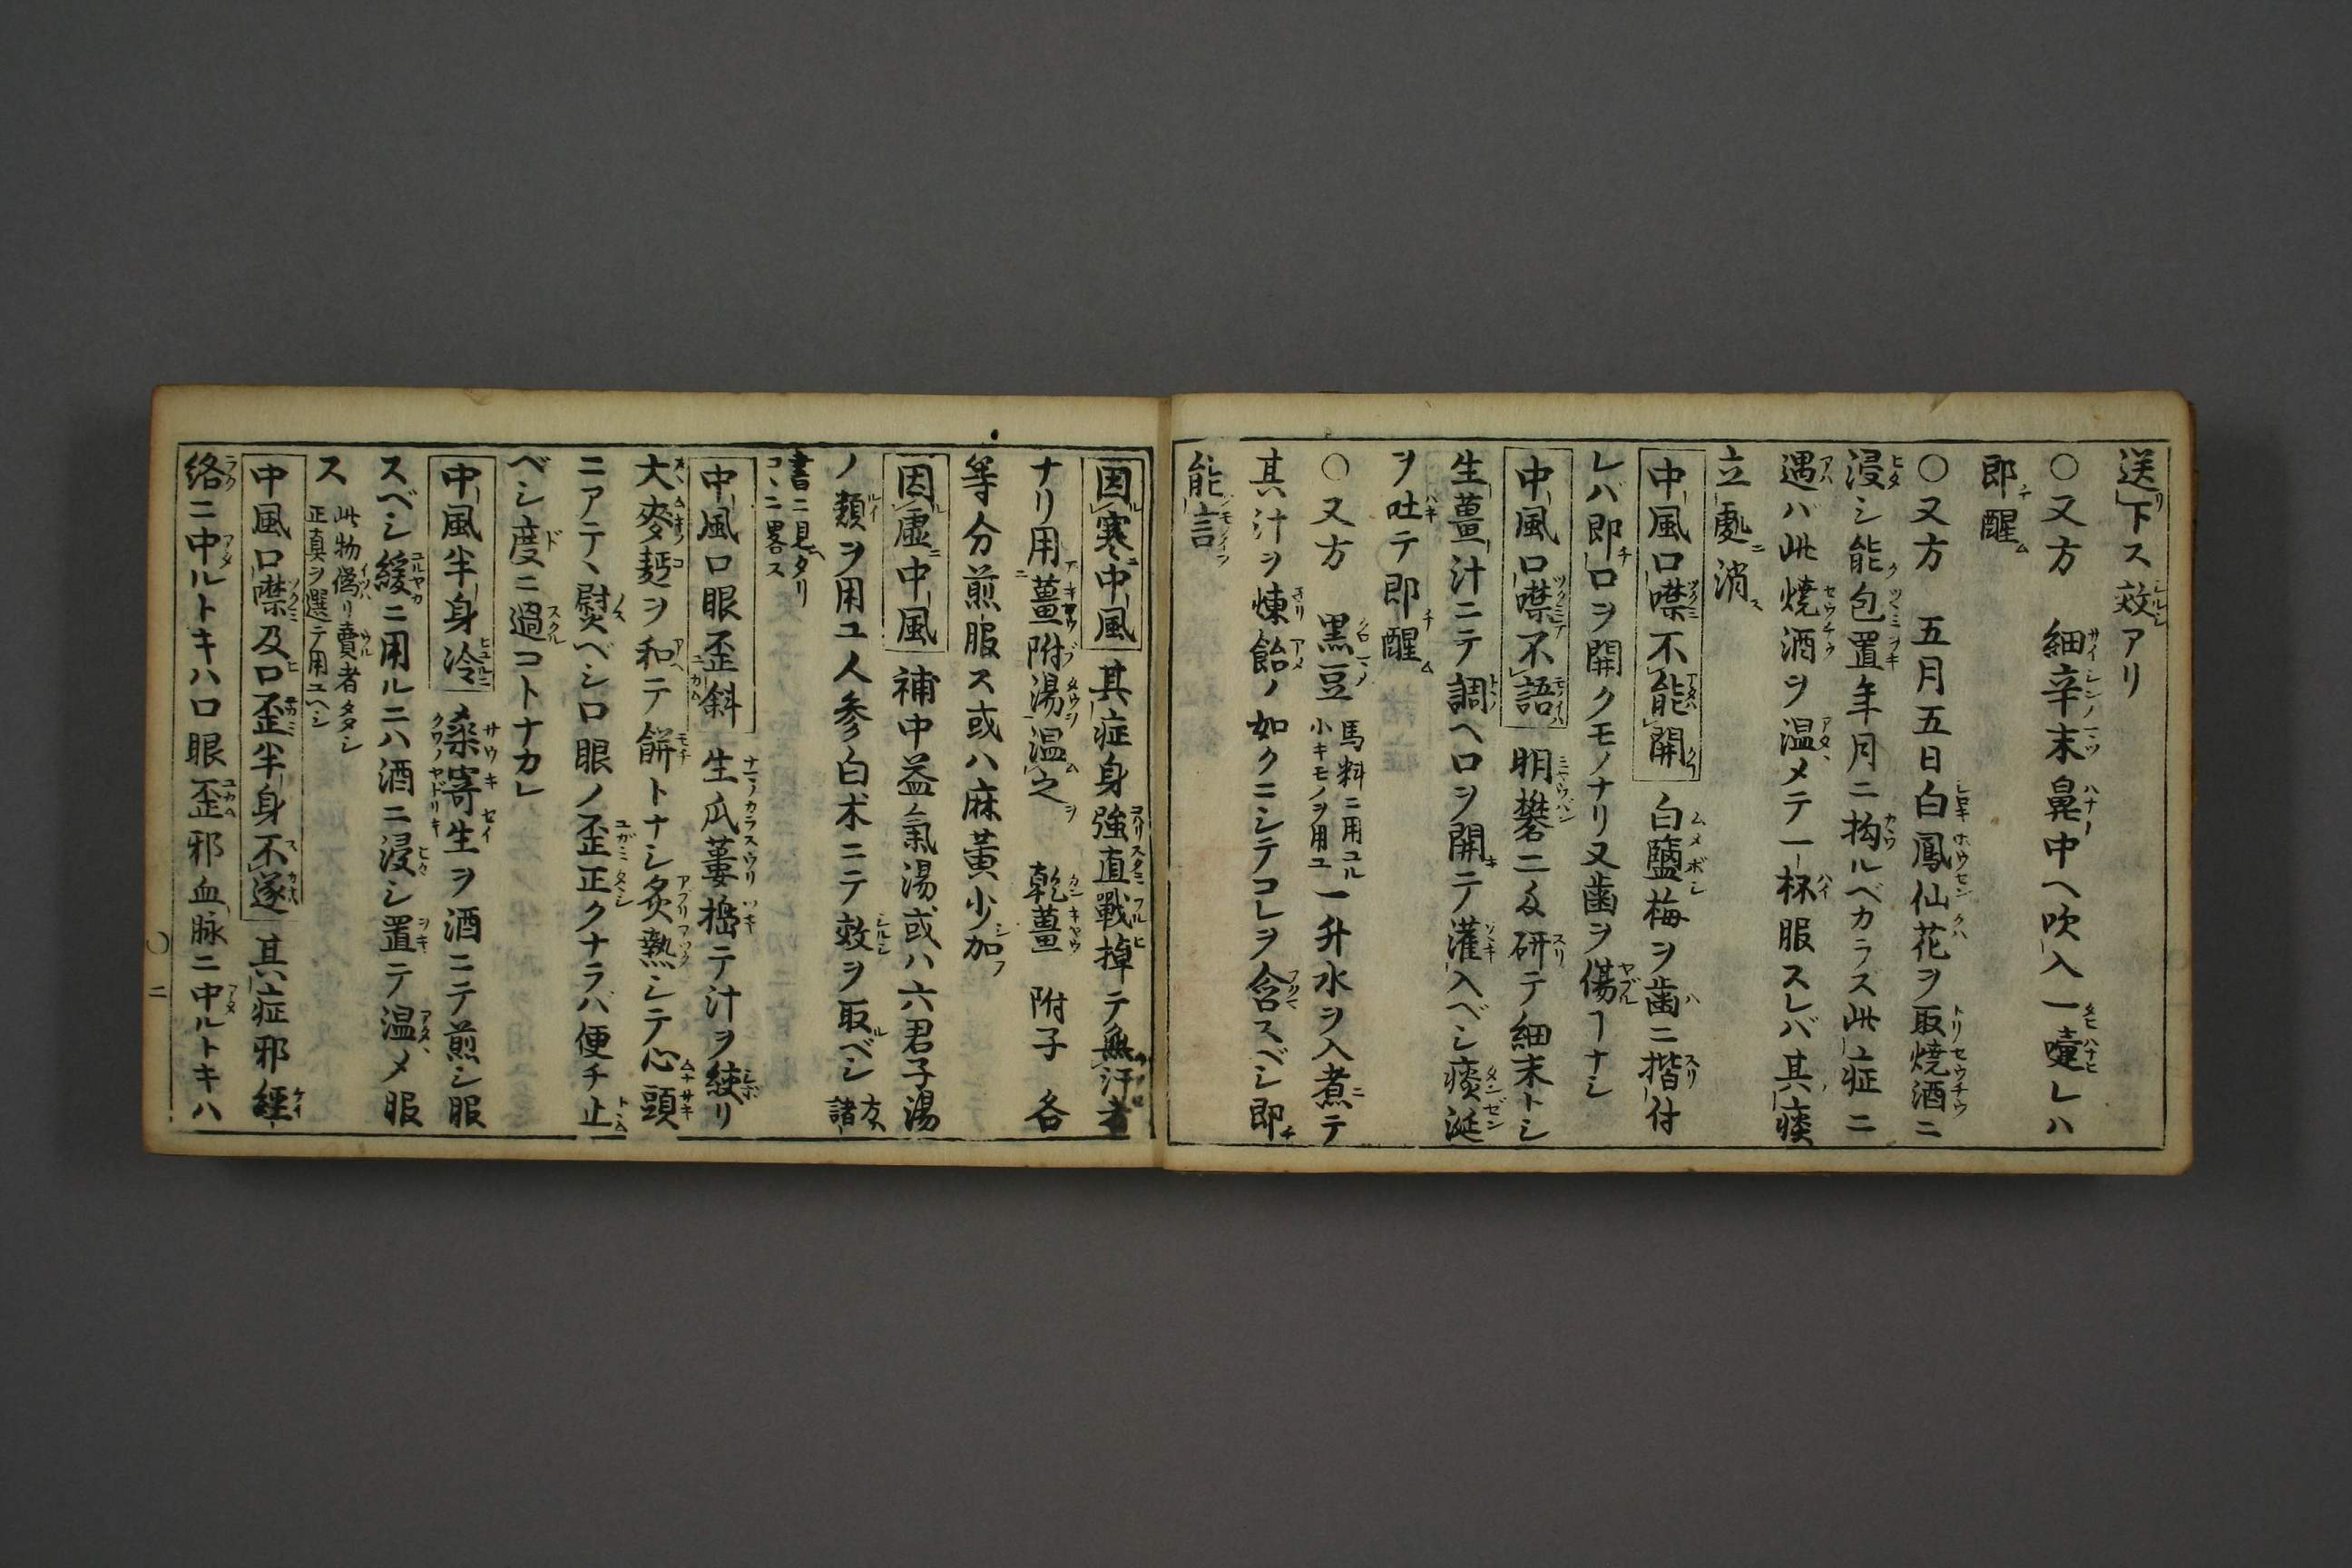 送下ス效アリ
〇又方 細辛末鼻中ヘ吹入一嚏レハ
即醒
〇又方 五月五日白鳳仙花ヲ取焼酒ニ
浸シ能包置年月ニ拘ルベカラズ此症ニ
遇ハ此焼酒ヲ温メテ一杯服スレバ其痰
立處消
中風口噤不能開 白鹽梅ヲ歯ニ揩付
レバ即口ヲ開クモノナリ又歯ヲ傷ヿナシ
中風口噤不語 明礬ニ匁研テ細末トシ
生薑汁ニテ調ヘ口ヲ開テ灌入ベシ痰涎
ヲ吐テ即醒
〇又方 黒豆 馬料ニ用ユル小キモノヲ用ユ 一升水ヲ入煮テ
其汁ヲ煉飴ノ如クニシテコレヲ含スベシ即
能言
因寒中風 其症身強直戰掉テ無汗者
ナリ用薑附湯温之 乾薑 附子 各
等分煎服ス或ハ麻黄少加
因虚中風 補中益氣湯或ハ六君子湯
ノ類ヲ用ユ人参白朮ニテ效ヲ取ベシ 方諸
書ニ見タリコヽニ畧ス
中風口眼歪斜 生瓜蔞搗テ汁ヲ絞リ
大麥麪ヲ和テ餅トナシ炙熱シテ心頭
ニアテヽ熨ベシ口眼ノ歪正クナラバ便チ止
ベシ度ニ過コトナカレ
中風半身冷 桑寄生ヲ酒ニテ煎シ服
スベシ緩ニ用ルニハ酒ニ浸シ置テ温メ服
ス 此物偽リ賣者多シ正真ヲ選テ用ユヘシ
中風口噤及口歪半身不遂 其症邪經
絡ニ中ルトキハ口眼歪邪血脉ニ中ルトキハ
〇二